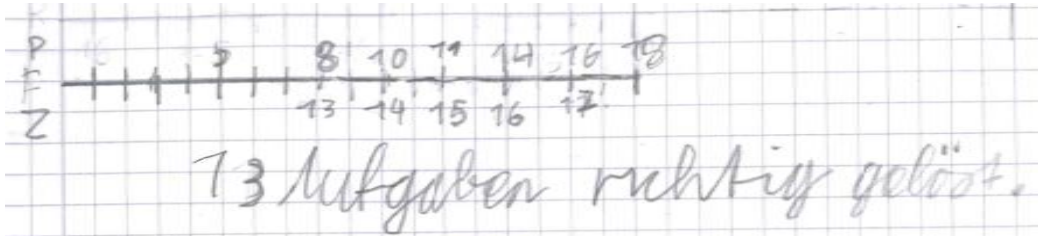 P 5 8 10 11 14 16 18
F
Z 13 14 15 16 17
13 Aufgaben richtig gelöst.